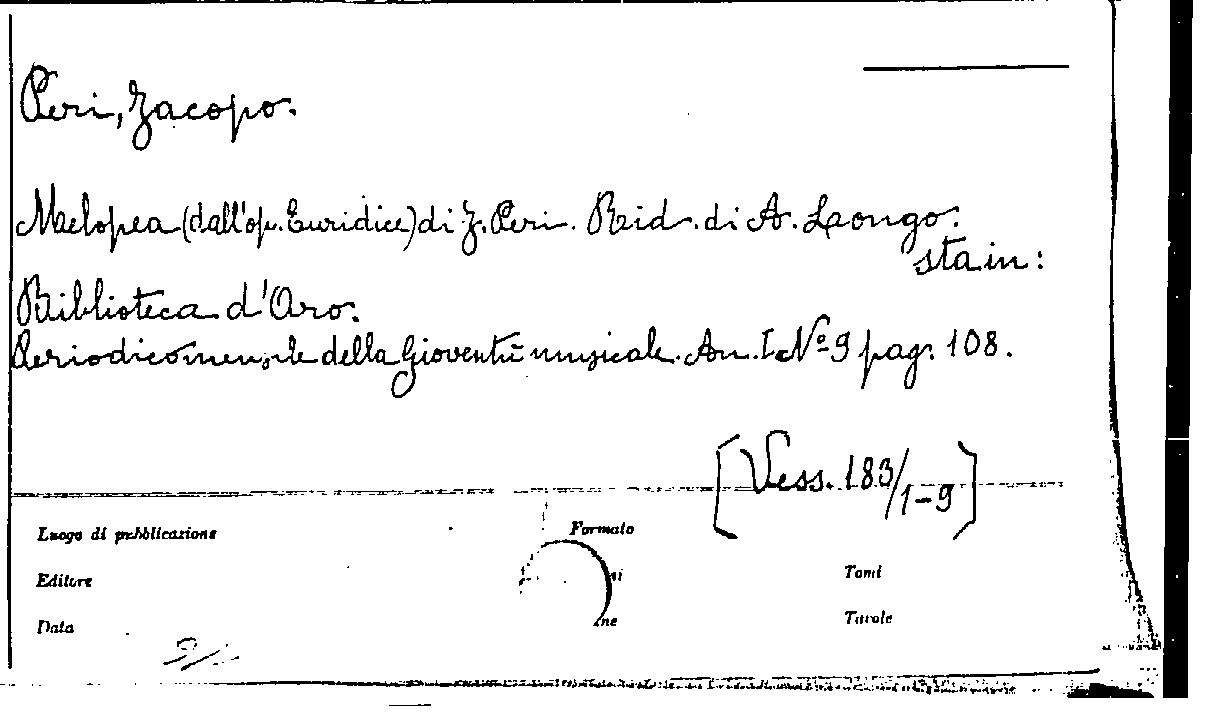 Peri, Jacopo.
Melopea (dall'op. Euridice) di J. Peri. Rid. di A. Longo.
sta in:
Biblioteca d'Oro.
Periodico mensile della Gioventù musicale. An. I. Nº 9 pag. 108.
[Vess. 183/1-9]
Luogo di pubblicazione Formato
Editore Tomi
Data Tavole